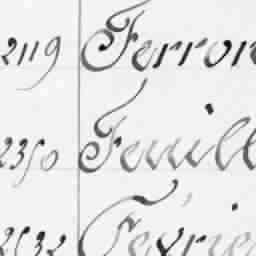 2119 Ferron
2350 Feuill
2532 Février